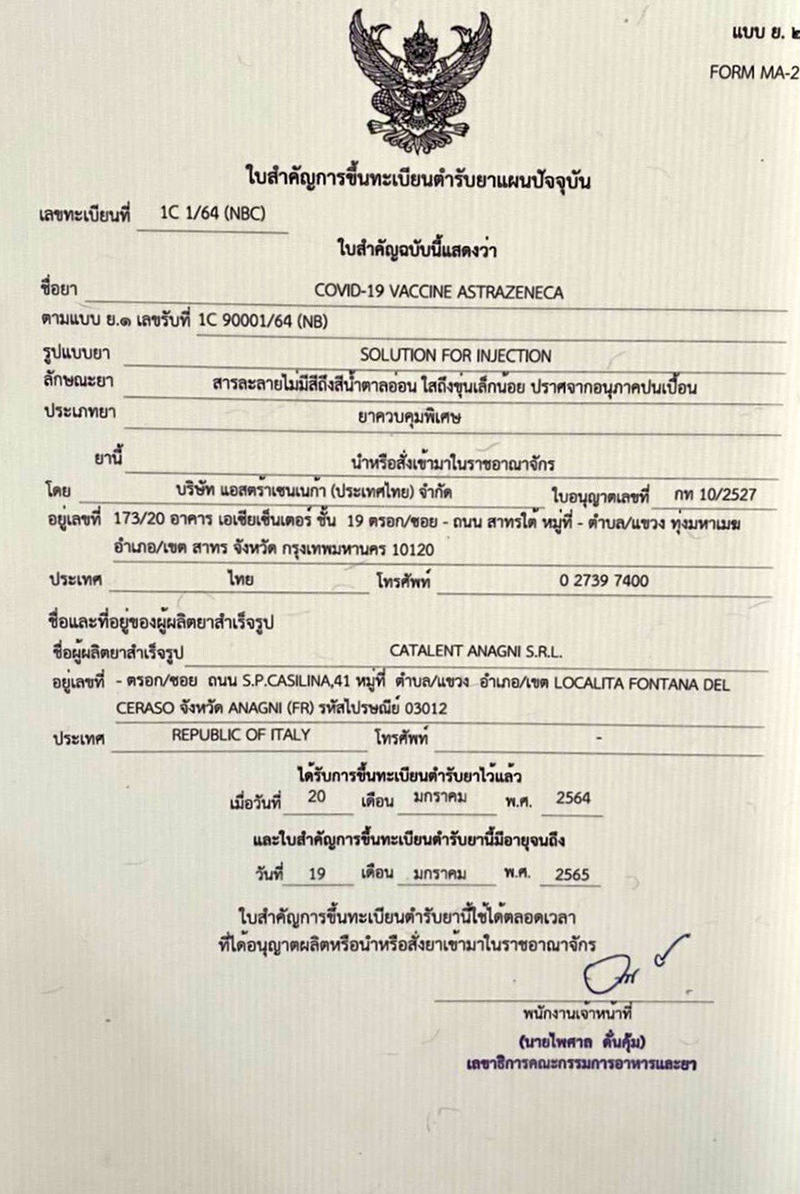 แบบ ย. ๒
FORM MA-2
ใบสำคัญการขึ้นทะเบียนตำรับยาแผนปัจจุบัน
เลขทะเบียนที่ 1C 1/64 (NBC)
ใบสำคัญฉบับนี้แสดงว่า
ชื่อยา COVID-19 VACCINE ASTRAZENECA
ตามแบบ ย.๑ เลขรับที่ 1C 90001/64 (NB)
รูปแบบยา SOLUTION FOR INJECTION
ลักษณะยา สารละลายไม่มีสีถึงสีน้ำตาลอ่อน ใสถึงขุ่นเล็กน้อย ปราศจากอนุภาคปนเปื้อน
ประเภทยา ยาควบคุมพิเศษ
ยานี้ นำหรือสั่งเข้ามาในราชอาณาจักร
โดย บริษัท แอสตร้าเซนเนก้า (ประเทศไทย) จำกัด ใบอนุญาตเลขที่ กท 10/2527
อยู่เลขที่ 173/20 อาคาร เอเชียเซ็นเตอร์ ชั้น 19 ตรอก/ซอย - ถนน สาทรใต้ หมู่ที่ - ตำบล/แขวง ทุ่งมหาเมฆ
อำเภอ/เขต สาทร จังหวัด กรุงเทพมหานคร 10120
ประเทศ ไทย โทรศัพท์ 0 2739 7400
ชื่อและที่อยู่ของผู้ผลิตยาสำเร็จรูป
ชื่อผู้ผลิตยาสำเร็จรูป CATALENT ANAGNI S.R.L.
อยู่เลขที่ - ตรอก/ซอย ถนน S.P.CASILINA,41 หมู่ที่ ตำบล/แขวง อำเภอ/เขต LOCALITA FONTANA DEL
CERASO จังหวัด ANAGNI (FR) รหัสไปรษณีย์ 03012
ประเทศ REPUBLIC OF ITALY โทรศัพท์ -
ได้รับการขึ้นทะเบียนตำรับยาไว้แล้ว
เมื่อวันที่ 20 เดือน มกราคม พ.ศ. 2564
และใบสำคัญการขึ้นทะเบียนตำรับยานี้มีอายุจนถึง
วันที่ 19 เดือน มกราคม พ.ศ. 2565
ใบสำคัญการขึ้นทะเบียนตำรับยานี้ใช้ได้ตลอดเวลา
ที่ได้อนุญาตผลิตหรือนำหรือสั่งยาเข้ามาในราชอาณาจักร
พนักงานเจ้าหน้าที่
(นายไพศาล ดั่นคุ้ม)
เลขาธิการคณะกรรมการอาหารและยา